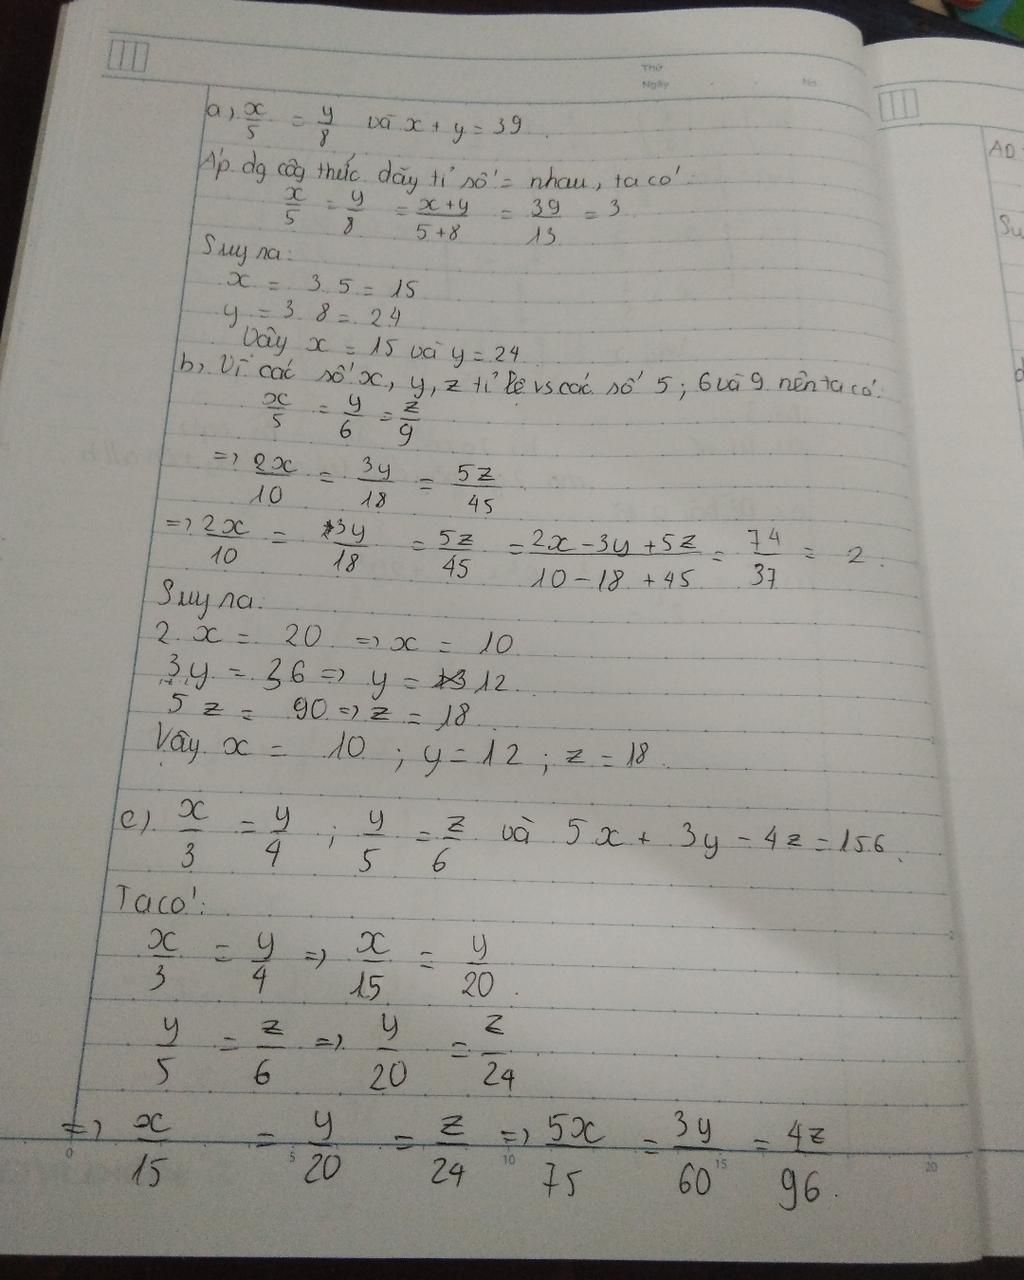 Thứ
Ngày
No
a, x/5 = y/8 và x + y = 39
Áp dg côg thức dãy tỉ số = nhau, ta có:
x/5 = y/8 = x+y/5+8 = 39/13 = 3
Suy ra:
x = 3.5 = 15
y = 3.8 = 24
Vậy x = 15 và y = 24
b, Vì các số x, y, z tỉ lệ vs các số 5; 6 và 9 nên ta có:
x/5 = y/6 = z/9
=> 2x/10 = 3y/18 = 5z/45
=> 2x/10 = 3y/18 = 5z/45 = 2x - 3y + 5z/10 - 18 + 45 = 74/37 = 2.
Suy ra:
2.x = 20 => x = 10
3y = 36 => y = 12
5z = 90 => z = 18
Vậy x = 10; y = 12; z = 18.
c) x/3 = y/4; y/5 = z/6 và 5x + 3y - 4z = 156.
Ta có:
x/3 = y/4 => x/15 = y/20.
y/5 = z/6 => y/20 = z/24
=> x/15 = y/20 = z/24 => 5x/75 = 3y/60 = 4z/96.
0 5 10 15 20
AD
Su